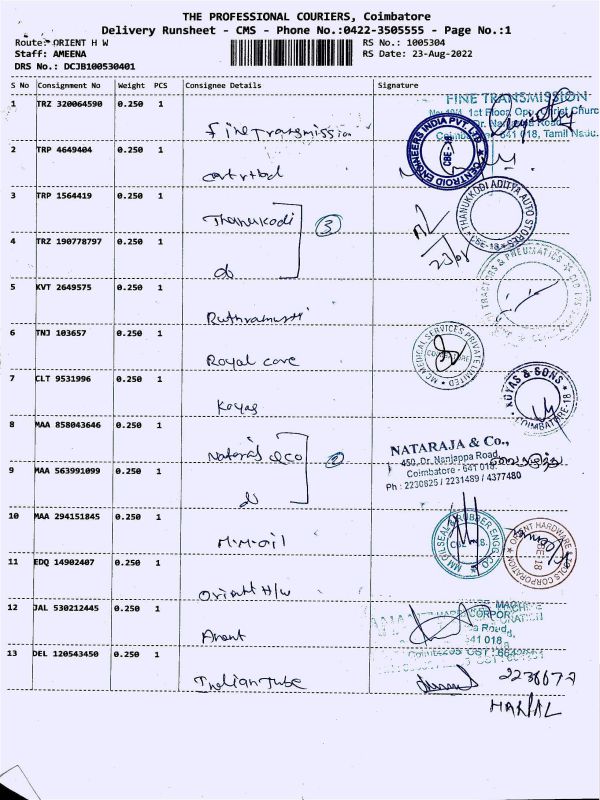 THE PROFESSIONAL COURIERS, Coimbatore
Delivery Runsheet - CMS - Phone No.:0422-3505555 - Page No.:1
Route: ORIENT H W
RS No.: 1005304
Staff: AMEENA
RS Date: 23-Aug-2022
DRS No.: DCJB100530401
S No Consignment No Weight PCS Consignee Details Signature
1 TRZ 320064590 0.250 1
Fine Transmission
FINE TRANSMISSION
1st Floor, Opp. Christ Church
641 018, Tamil Nadu.
CENTROID ENGINEERS INDIA PVT LTD
CBE-18
2 TRP 4649404 0.250 1
3 TRP 1564419 0.250 1
Thanukodi
3
THANUKKODI ADITYA AUTO STORES
CBE-18
4 TRZ 190778797 0.250 1
do
23/08
TRACTORS & PNEUMATICS
5 KVT 2649575 0.250 1
Ruthramurti
6 TNJ 103657 0.250 1
Royal care
MCMEDICAL SERVICES PRIVATE LIMITED
7 CLT 9531996 0.250 1
Koyas
KOYAS & SONS
COIMBATORE-18
8 MAA 858043646 0.250 1
Nataraj &co
NATARAJA & Co.,
450, Dr. Nanjappa Road,
Coimbatore - 641 018.
Ph : 2230825 / 2231489 / 4377480
9 MAA 563991099 0.250 1
do
10 MAA 294151845 0.250 1
M.M.oil
MM OIL SEAL & RUBBER ENGG. CO
ORIENT HARDWARE TOOLS CORPORATION
CBE 18
11 EDQ 14902407 0.250 1
Orient H/w
12 JAL 530212445 0.250 1
Anant
641 018
13 DEL 120543450 0.250 1
Indian Tube